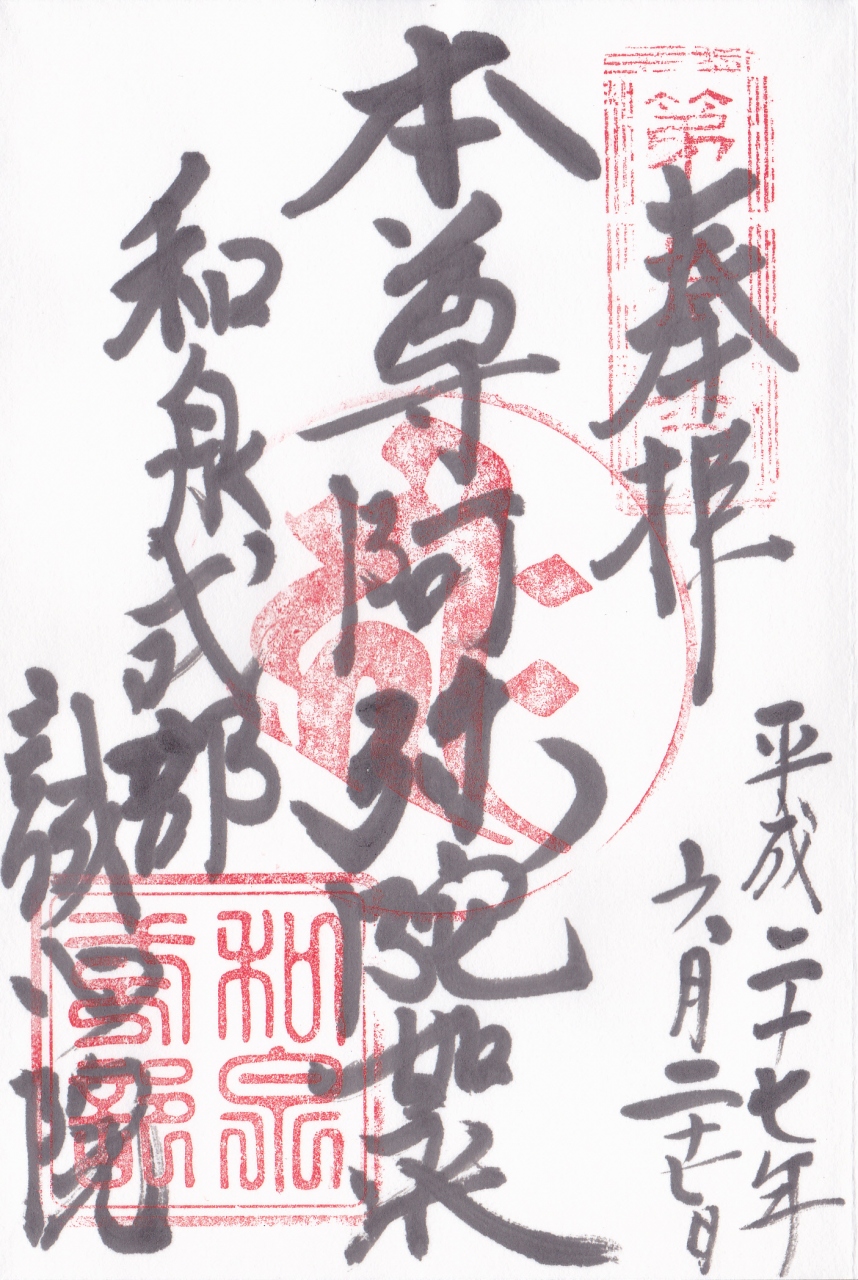 第
奉拝
平成二十七年
六月二十七日
本尊阿弥陀如来
和泉式部
誠心院
和泉
式部